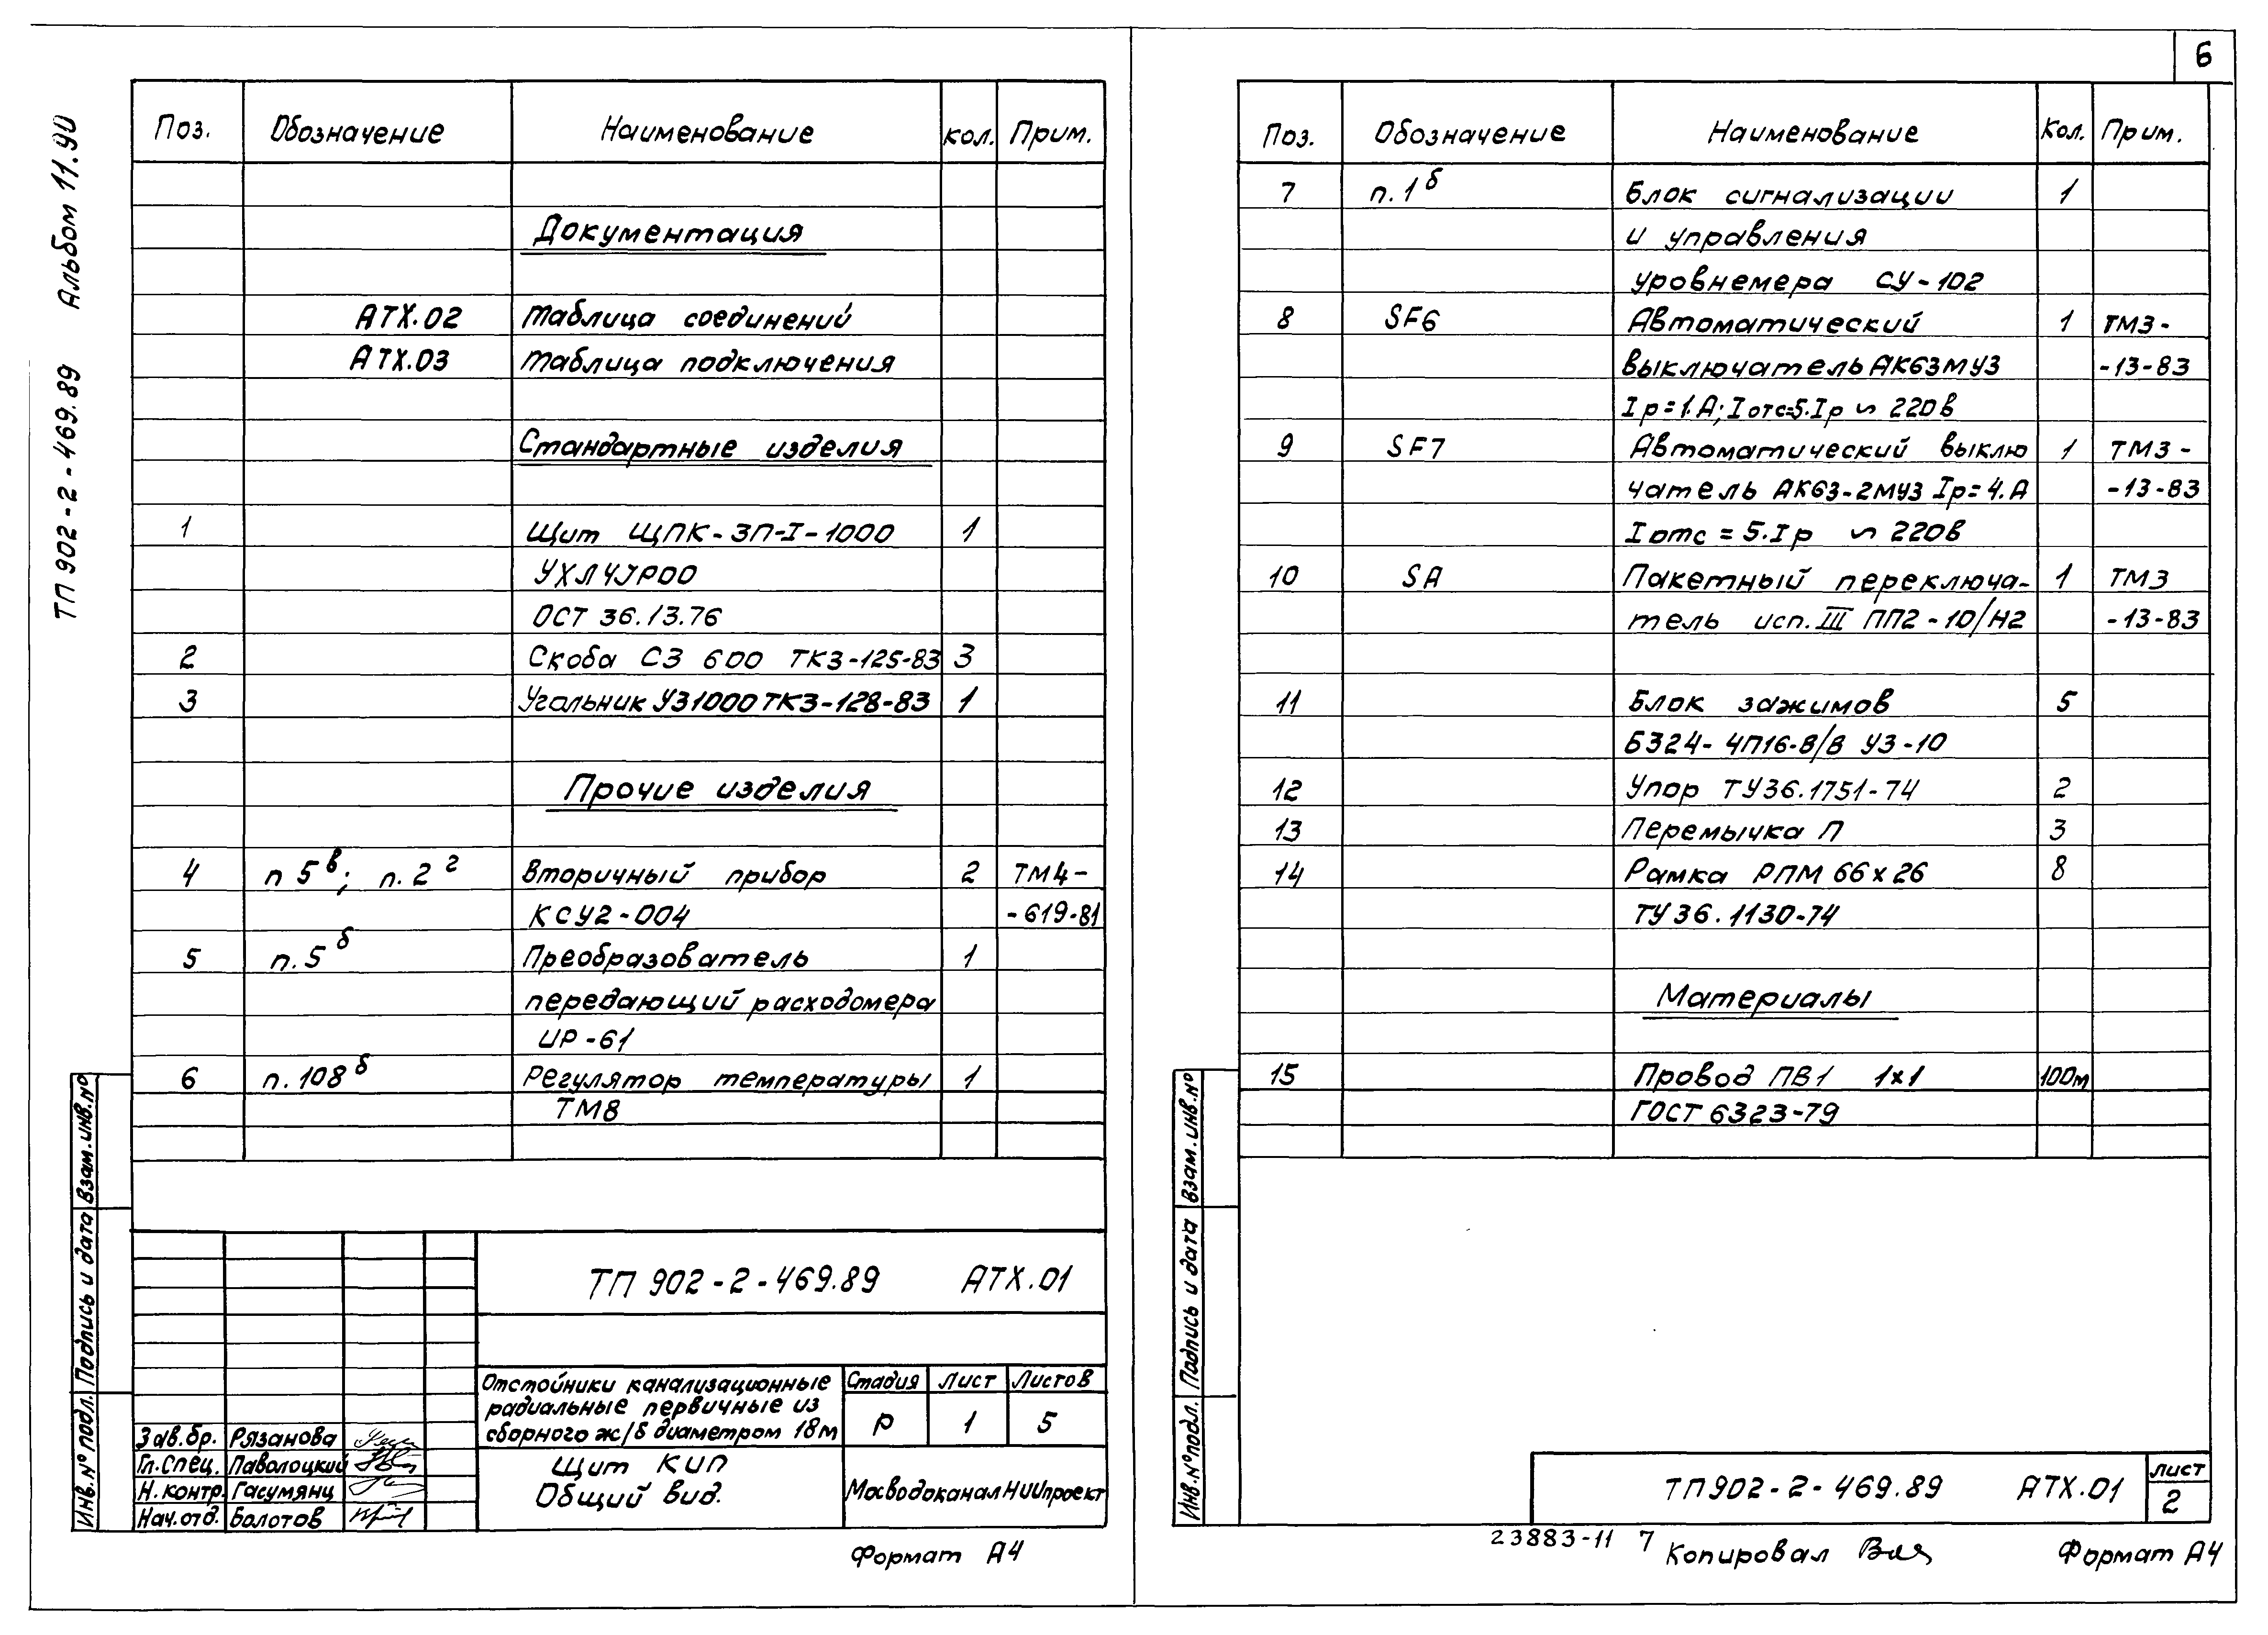 6
Альбом 11.90
ТП 902-2-469.89
Поз. Обозначение Наименование кол. Прим.
Документация
АТХ.02 Таблица соединений
АТХ.03 Таблица подключения
Стандартные изделия
1 Щит ЩПК-ЗП-I-1000 1
УХЛ4JP00
ОСТ 36.13.76
2 Скоба СЗ 600 ТКЗ-125-83 3
3 Угольник УЗ1000 ТКЗ-128-83 1
Прочие изделия
4 п 5в; п.2г Вторичный прибор 2 ТМ4-
КСУ2-004 -619-81
5 п.5б Преобразователь 1
передающий расходомера
ИР-61
6 п.108б Регулятор температуры 1
ТМ8
ТП 902-2-469.89 АТХ.01
Отстойники канализационные
радиальные первичные из
сборного ж/б диаметром 18м
Стадия Лист Листов
Р 1 5
Зав.бр. Рязанова
Гл.спец. Паволоцкий
Н.контр Гасумянц
Нач.отд. Болотов
Щит КИП
Общий вид.
МосводоканалНИИпроект
Инв.№ подл. Подпись и дата Взам.инв.№
Формат А4
Поз. Обозначение Наименование Кол. Прим.
7 п.1б Блок сигнализации 1
и управления
уровнемера СУ-102
8 SF6 Автоматический 1 ТМ3-
выключатель АК63МУ3 -13-83
Iр=1.А; Iотс=5.Iр ∾ 220в
9 SF7 Автоматический выклю 1 ТМ3-
чатель АК63-2МУ3 Iр=4.А -13-83
Iотс=5.Iр ∾ 220в
10 SA Пакетный переключа- 1 ТМ3
тель исп. III ПП2-10/Н2 -13-83
11 Блок зажимов 5
Б324-4П16-В/В У3-10
12 Упор ТУ36.1751-74 2
13 Перемычка П 3
14 Рамка РПМ 66х26 8
ТУ36.1130-74
Материалы
15 Провод ПВ1 1х1 100м
ГОСТ 6323-79
Инв.№ подл. Подпись и дата Взам.инв.№
ТП902-2-469.89 АТХ.01
Лист
2
23883-11 7 Копировал
Формат А4